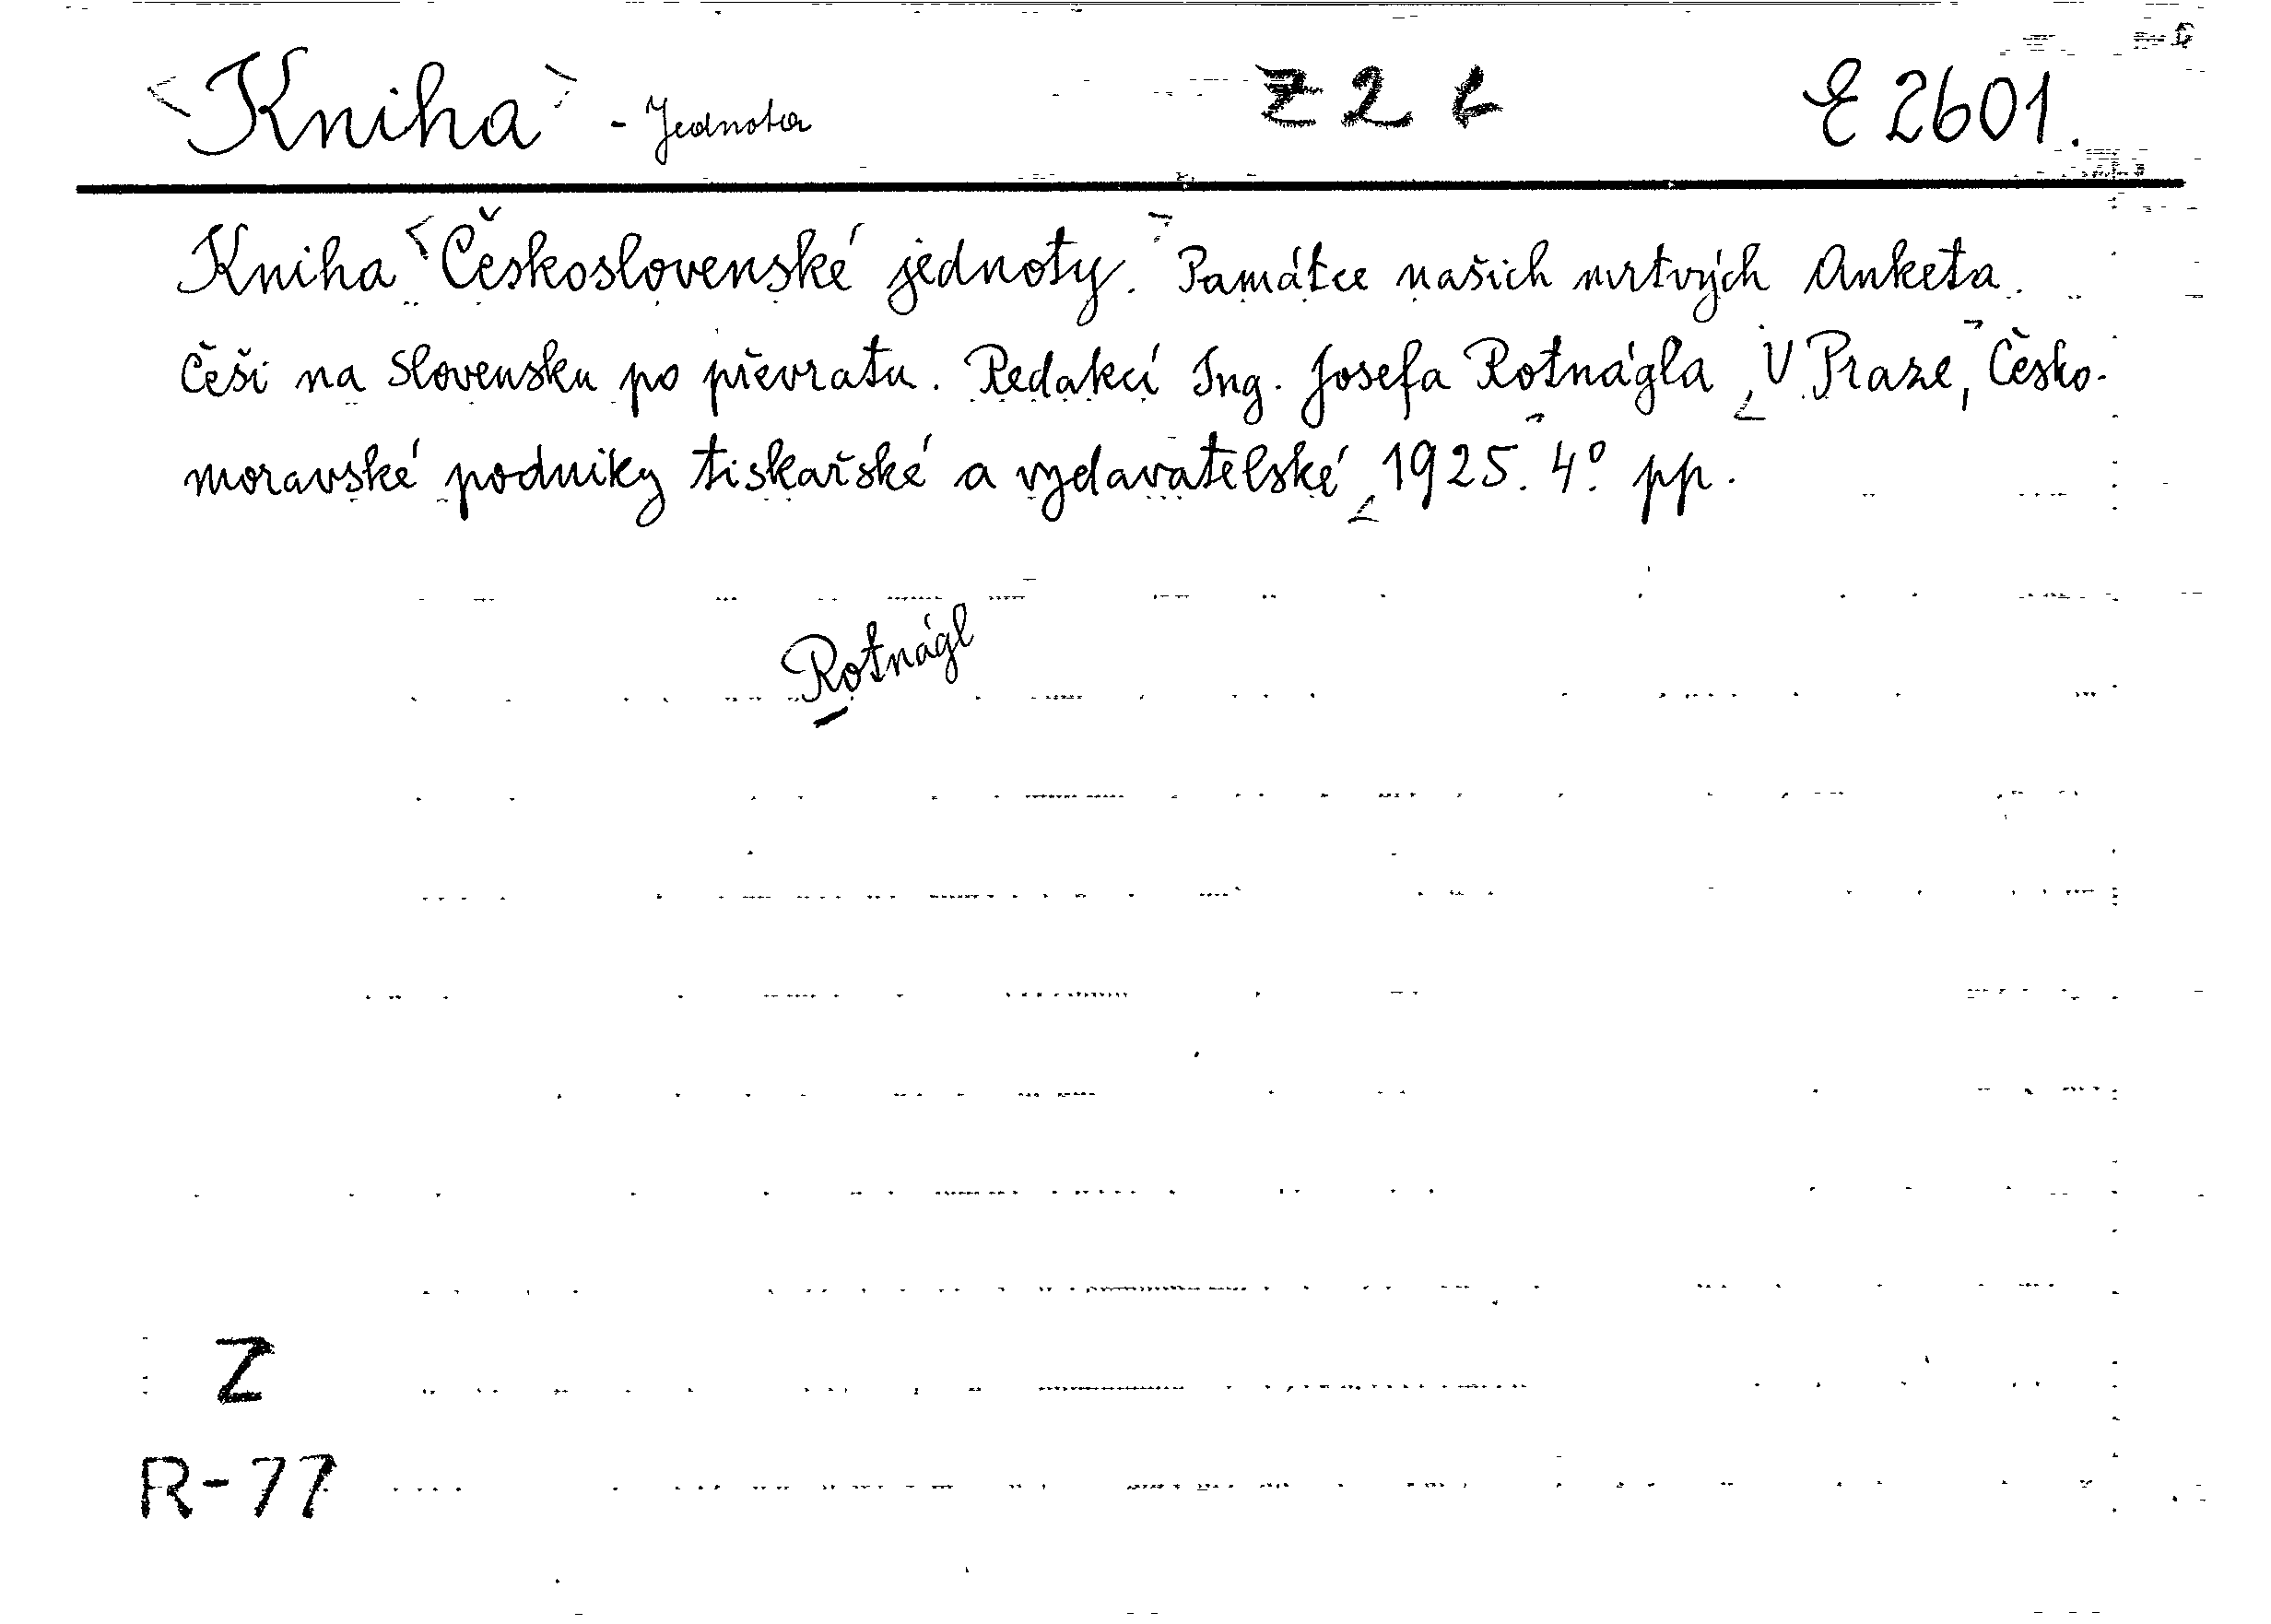 Kniha - Jednota Z 2 L E 2601.
Kniha Československé jednoty. Památce našich mrtvých Anketa.
Češi na Slovensku po převratu. Redakcí Ing. Josefa Rotnágla V Praze, Česko-
moravské podniky tiskařské a vydavatelské 1925. 4° pp.
Rotnágl
Z
R-77